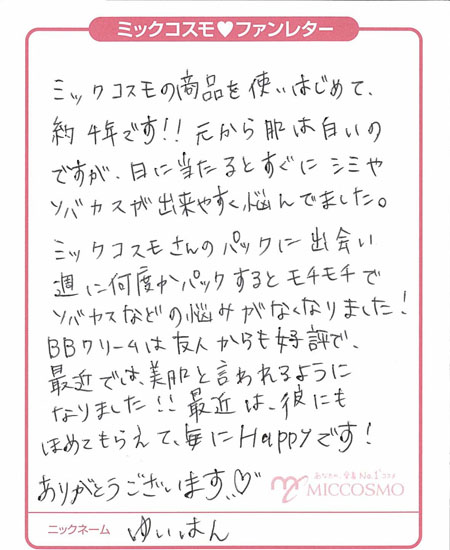 ミックコスモ♥ファンレター
ミックコスモの商品を使いはじめて、
約4年です!! 元から肌は白いの
ですが、日に当たるとすぐにシミや
ソバカスが出来やすく悩んでました。
ミックコスモさんのパックに出会い
週に何度かパックするとモチモチで
ソバカスなどの悩みがなくなりました!
BBクリームは友人からも好評で、
最近では、美肌と言われるように
なりました!! 最近は、彼にも
ほめてもらえて、毎にHappyです!
ありがとうございます、♡
あなたの、全員No.1コスメ
MICCOSMO
ニックネーム ゆいはん